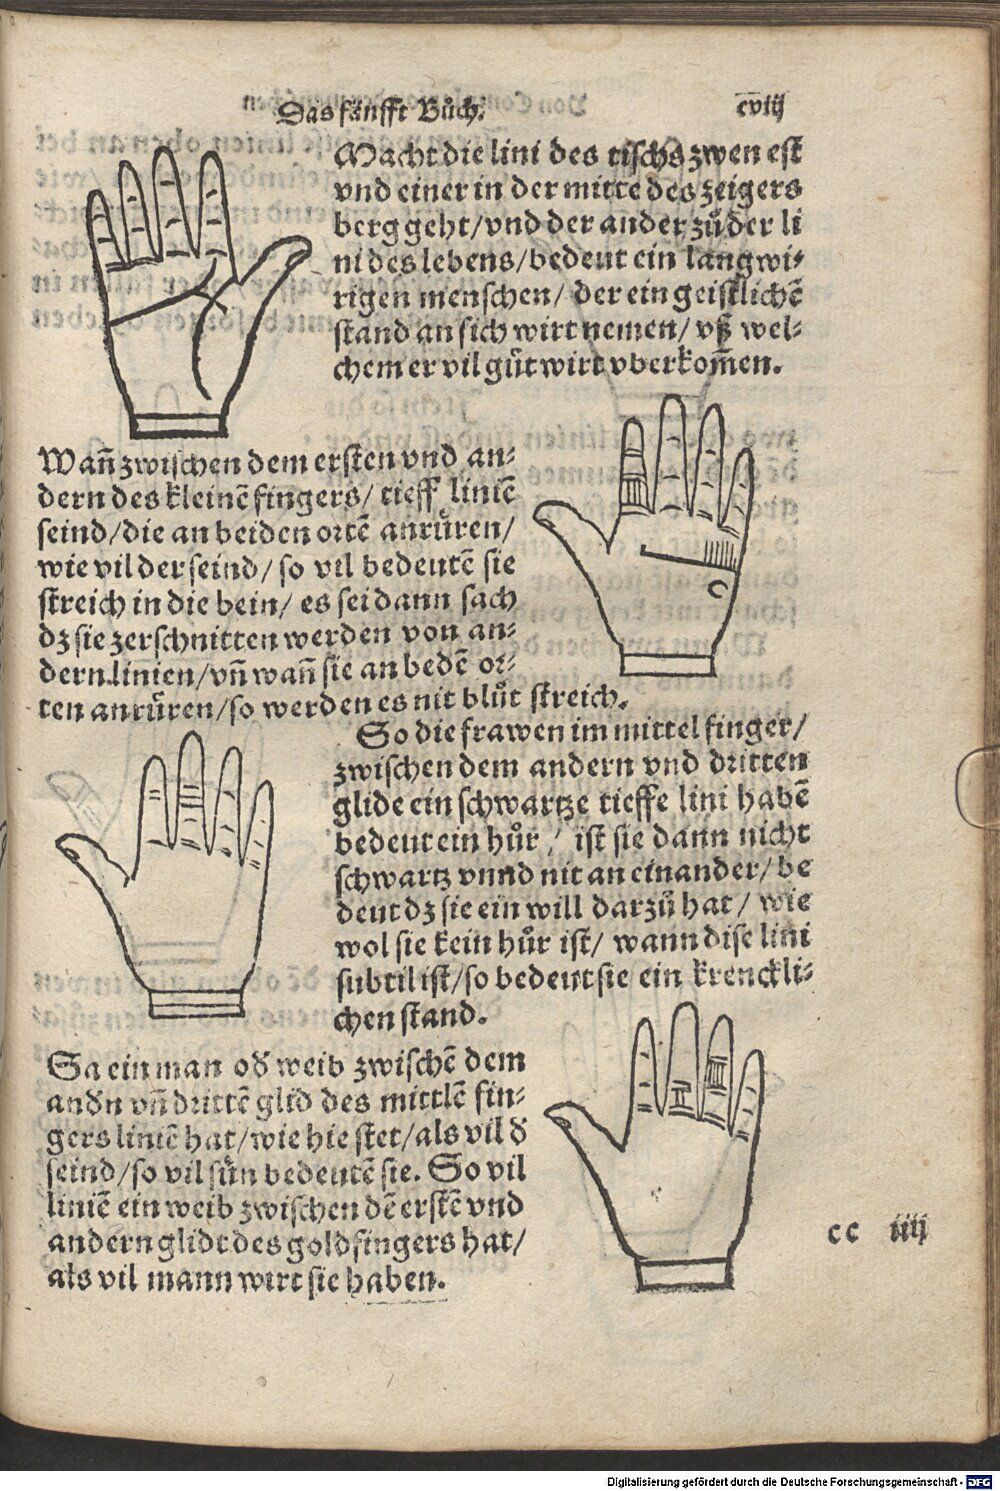 Das fünfft Bůch.
cviij
Macht die lini des tischs zwen est
vnd einer in der mitte des zeigers
berg geht/vnd der ander zů der li
ni des lebens/bedeut ein langwi⸗
rigen menschen/ der ein geistlichē
stand an sich wirt nemen/ vß wel⸗
chem er vil gůt wirt vberkom̄en.
Wan̄ zwischen dem ersten vnd an⸗
dern des kleinē fingers/ tieff liniē
seind/die an beiden ortē anrůren/
wie vil der seind/ so vil bedeutē sie
streich in die bein/ es sei dann sach
dz sie zerschnitten werden von an⸗
dern linien/vn̄ wan̄ sie an bedē or⸗
ten anrůren/so werden es nit blůt streich.
So die frawen im mittel finger/
zwischen dem andern vnd dritten
glide ein schwartze tieffe lini habē
bedeut ein hůr / ist sie dann nicht
schwartz vnnd nit an einander/be
deut dz sie ein will darzů hat/ wie
wol sie kein hůr ist/ wann dise lini
subtil ist/so bedeut sie ein krenckli⸗
chen stand.
Sa ein man od̕ weib zwischē dem
and̕n vn̄ drittē glid des mittlē fin⸗
gers liniē hat/wie hie stet/als vil d̕
seind/so vil sün bedeutē sie. So vil
liniē ein weib zwischen dē erstē vnd
andern glidt des goldfingers hat/
als vil mann wirt sie haben.
cc iiij
Digitalisierung gefördert durch die Deutsche Forschungsgemeinschaft - DFG